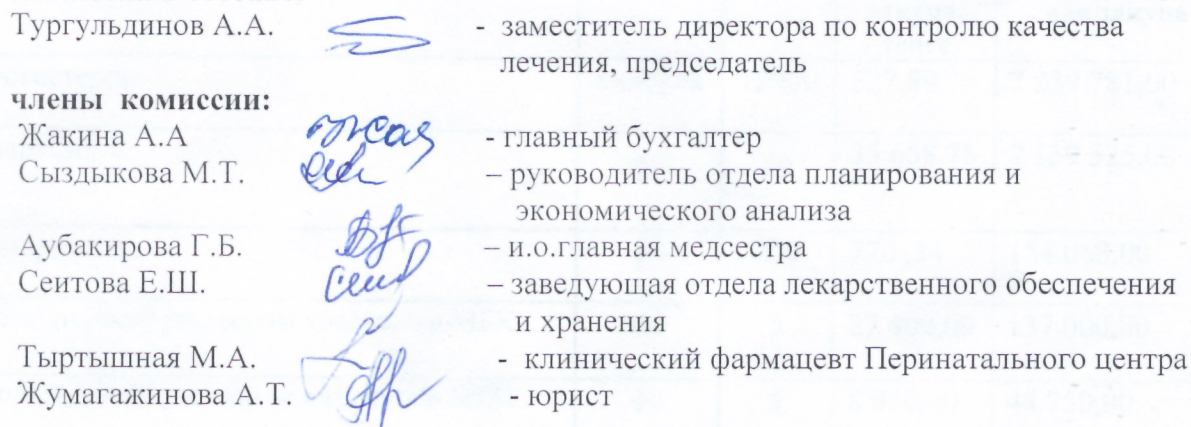 Тургульдинов А.А. - заместитель директора по контролю качества
лечения, председатель
члены комиссии:
Жакина А.А - главный бухгалтер
Сыздыкова М.Т. – руководитель отдела планирования и
экономического анализа
Аубакирова Г.Б. – и.о.главная медсестра
Сеитова Е.Ш. – заведующая отдела лекарственного обеспечения
и хранения
Тыртышная М.А. - клинический фармацевт Перинатального центра
Жумагажинова А.Т. - юрист